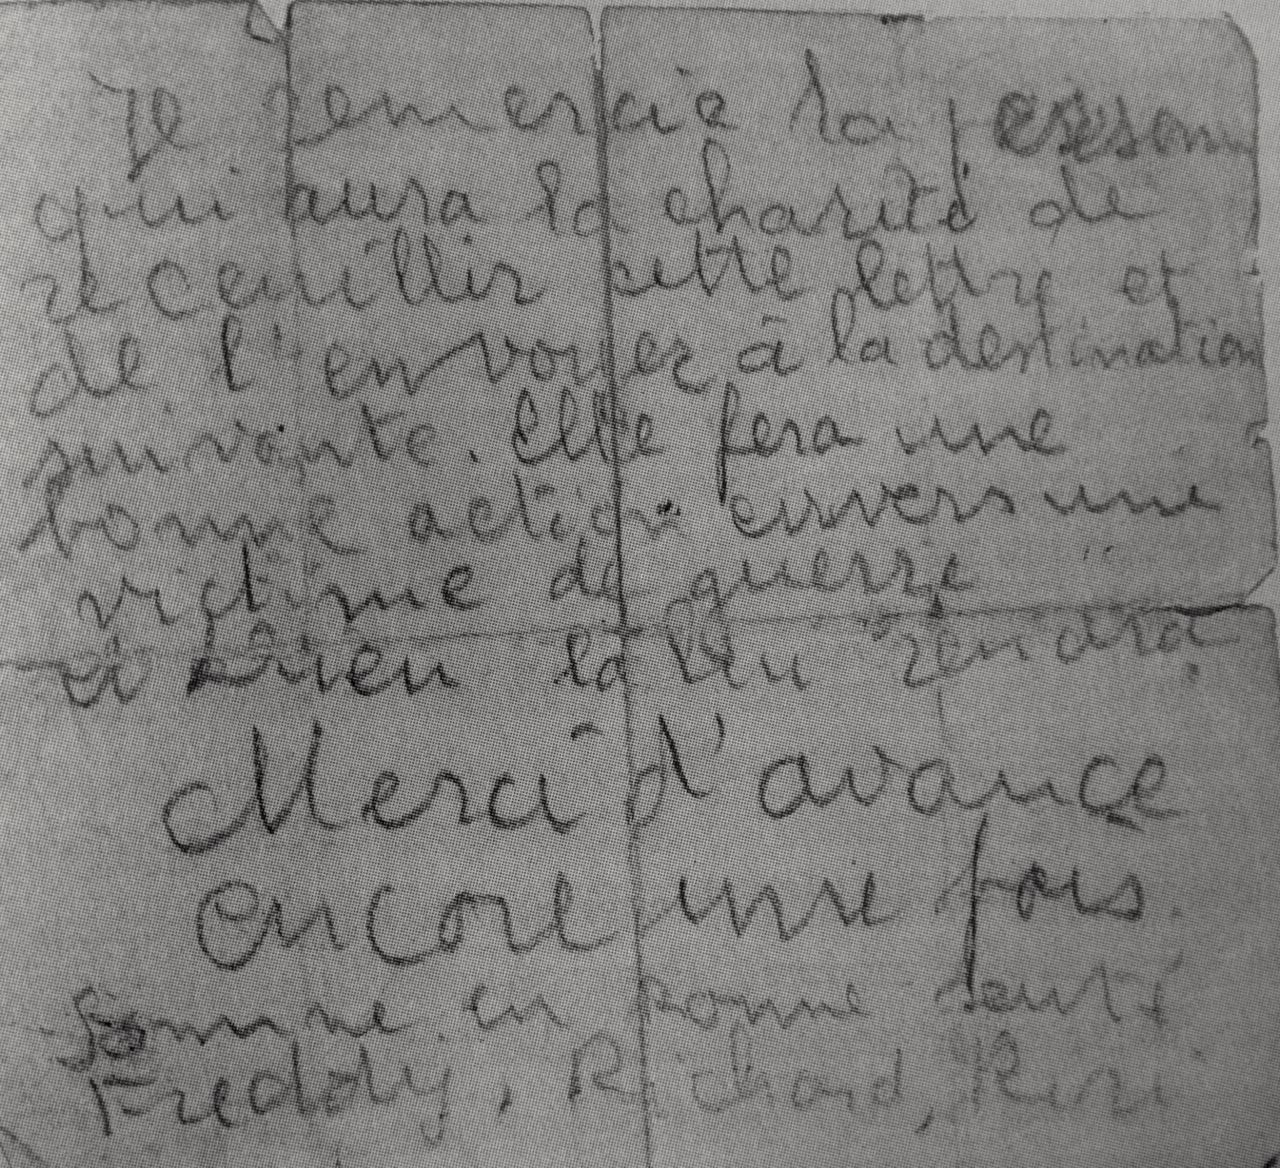 Je remercie la personne
qui aura la charité de
receuillir cette lettre et
de l'envoyer à la destination
suivante. Elle fera une
bonne action envers une
victime de guerre
et Dieu la lui rendra.
Merci d'avance
encore une fois.
Somme en bonne santé
Freddy, Richard, Riri